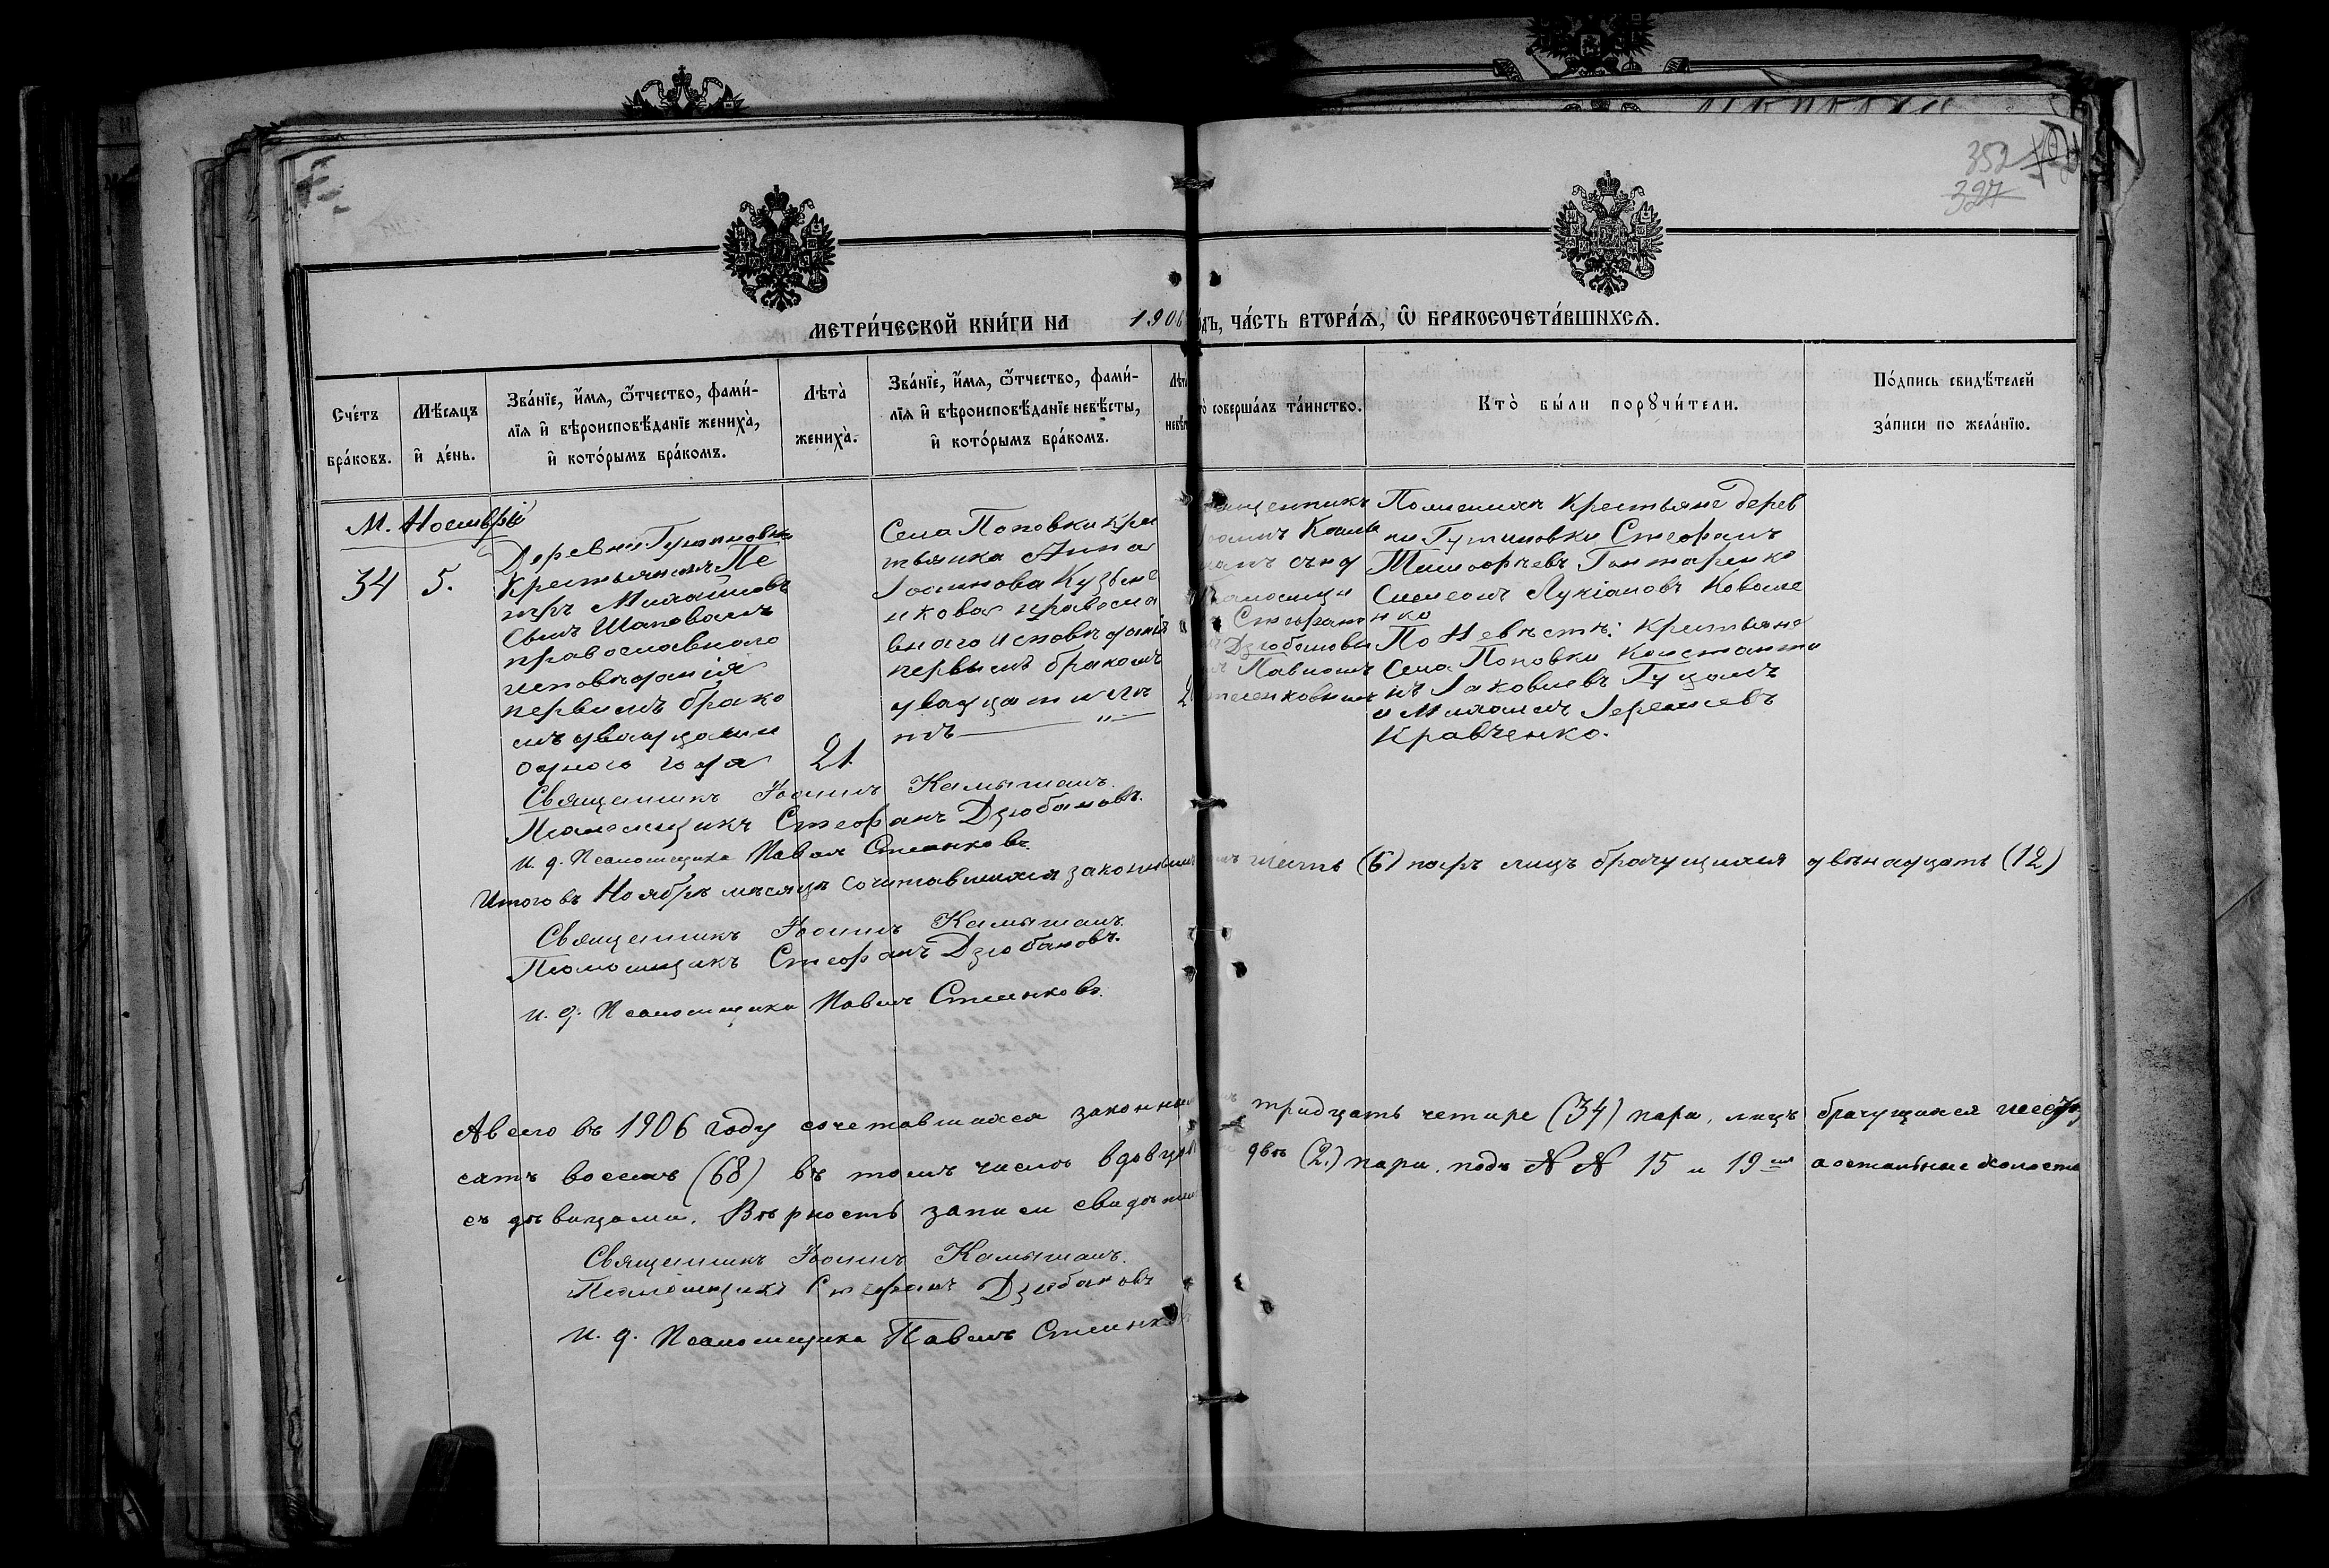 352
327
МЕТРИ́ЧЕСКОЙ КНИ́ГИ НА 1906 ГО́ДЪ, ЧА́СТЬ ВТОРА́Ѧ, Ѿ БРАКОСОЧЕТА́ВШИХСѦ.
Сче́тъ бра́ковъ.
Мѣ́сяцъ и҆ де́нь.
Зва́нїе, и҆́мѧ, ѻ҆́тчество, фами́-
лїѧ и҆ вѣроисповѣ́данїе жениха̀,
и҆ кото́рымъ бра́комъ.
Лѣта̀ жениха̀.
Зва́нїе, и҆́мѧ, ѻ҆́тчество, фами́-
лїѧ и҆ вѣроисповѣ́данїе невѣ́сты,
и҆ кото́рымъ бра́комъ.
Лѣт
невѣ
то̀ соверша́лъ та́инство.
Кто̀ бы́ли порꙋчи́тели.
По́дпись свидѣ́телей
за́писи по жела́нїю.
М. Ноембрій
34
5.
Деревни
Крестьянинъ Пе
тръ Михайловъ
Сынъ Шаповалъ
православного
исповѣданія
первымъ брако
мъ двадцати
одного года
21
Села Поповки кре
тьянка Анна
Іоаннова Кузьме
нкова правосла
внаго исповѣданія
первымъ бракомъ
двадцати лѣ
тъ
2
ященникъ
оаннъ Камы
шанъ съ
саломщи
Стефано
Дзюбановы
Павломъ
теленковымъ
По женихѣ Крестьяне Дерев
ни Стефанъ
Тимофѣевъ Гонтаренко
Симеонъ Лукіановъ Ковале
нко
По Невѣстѣ: крестьяне
Села Поповки Константи
нъ Іаковлевъ Гуцалъ
и Михаилъ Іереміевъ
Кравченко.
Священникъ Іоаннъ Камышанъ.
Псаломщикъ Стефанъ Дзюбановъ.
И. д. Псаломщика Павелъ Стеленковъ.
Итого въ Ноябрѣ мѣсяцѣ сочитавшихся законнымъ шесть (6) паръ лицъ брачущихся двѣнадцать (12)
Священникъ Іоаннъ Камышанъ.
Псаломщикъ Стефанъ Дзюбановъ.
И. д. Псаломщика Павелъ Стеленковъ.
А всего въ 1906 году сочетавшихся законны тридцать четыре (34) пары, лицъ брачущихся шесть
сятъ восемь (68) въ томъ числѣ вдовцов двѣ (2.) пары подъ № № 15 и 19 а остальные холосты
съ дѣвицами. Вѣрность записи свидѣтел
Священникъ Іоаннъ Камышанъ.
Псаломщикъ Стефанъ Дзюбановъ
И. д. Псаломщика Павелъ Стеленков